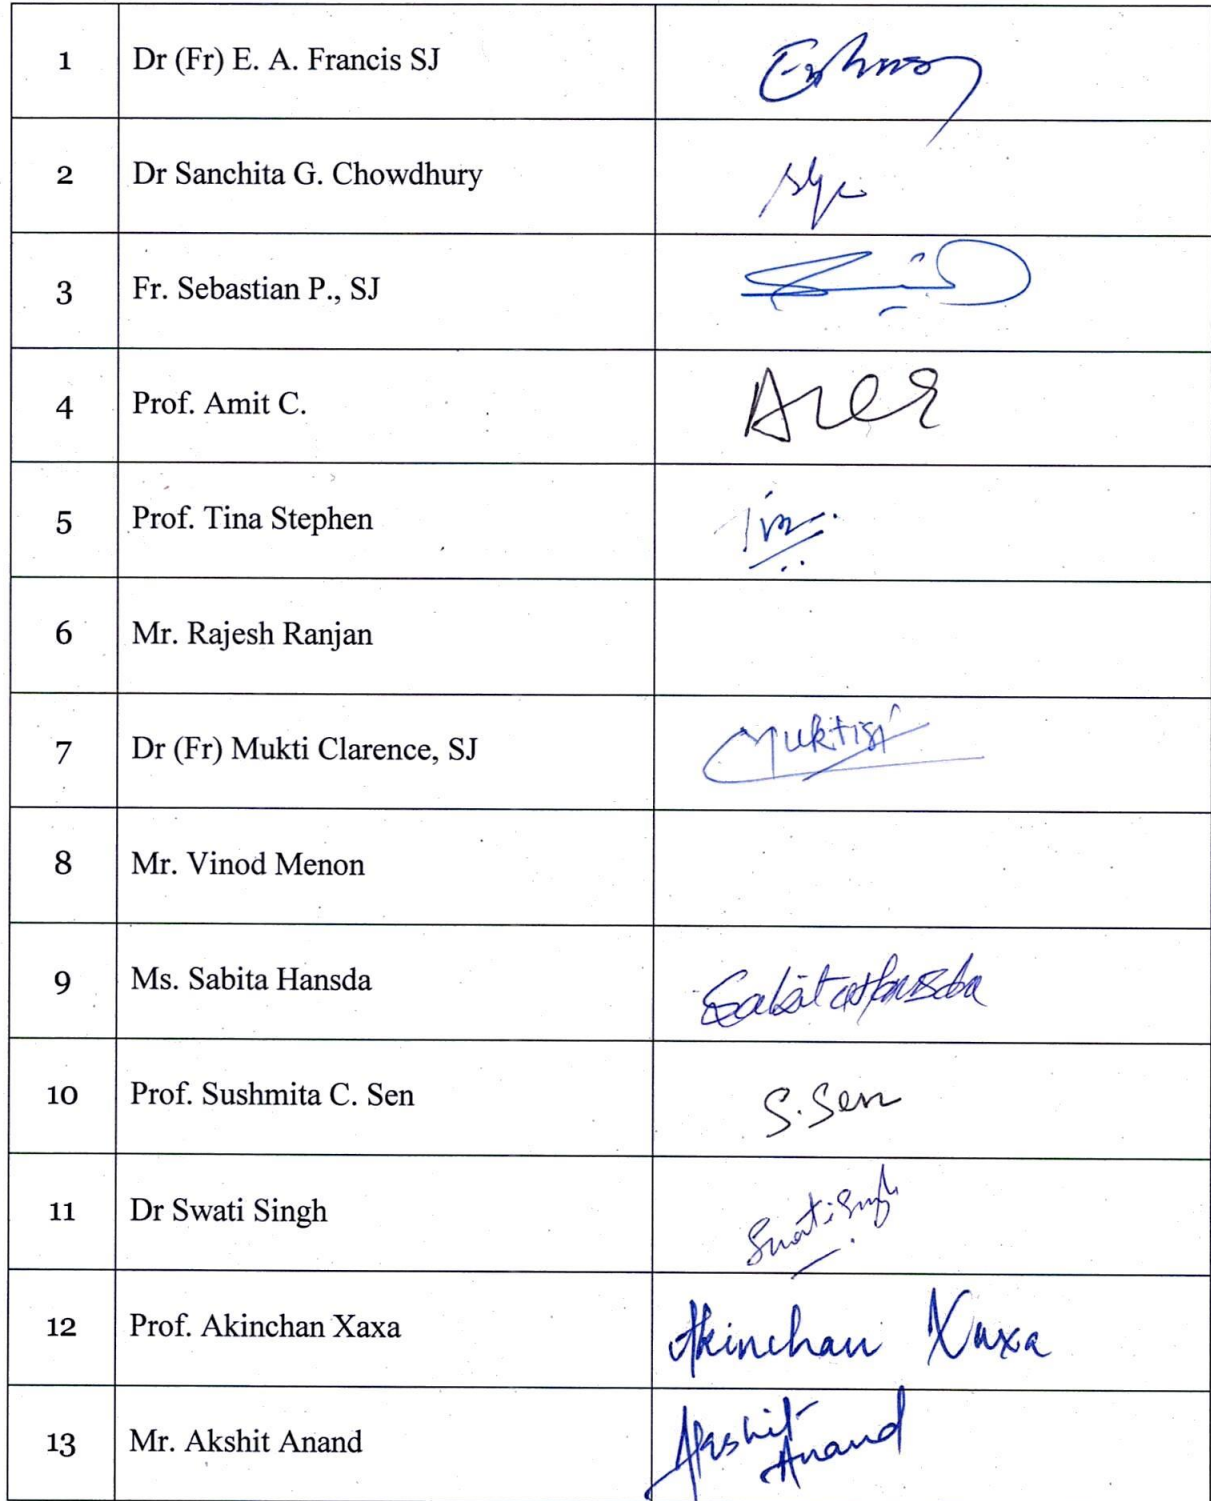 1 Dr (Fr) E. A. Francis SJ
2 Dr Sanchita G. Chowdhury
3 Fr. Sebastian P., SJ
4 Prof. Amit C.
5 Prof. Tina Stephen
6 Mr. Rajesh Ranjan
7 Dr (Fr) Mukti Clarence, SJ Muktisj
8 Mr. Vinod Menon
9 Ms. Sabita Hansda Sabita Hansda
10 Prof. Sushmita C. Sen S. Sen
11 Dr Swati Singh Swati Singh
12 Prof. Akinchan Xaxa Akinchan Xaxa
13 Mr. Akshit Anand Akshit
Anand